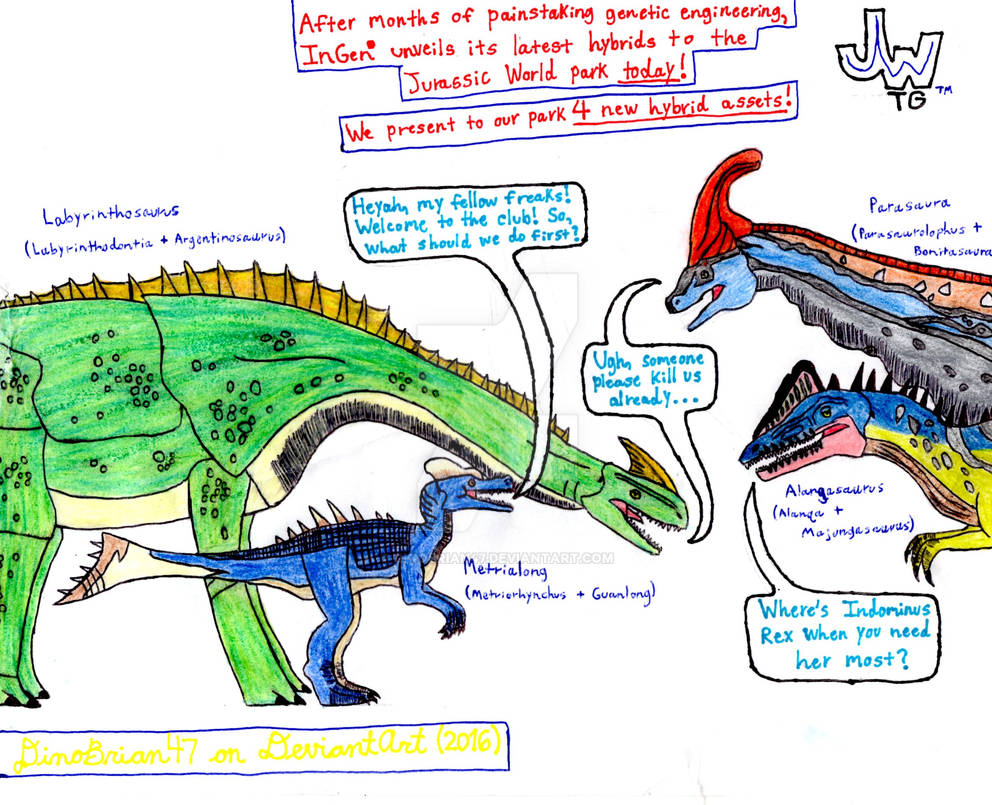 After months of painstaking genetic engineering,
InGen® unveils its latest hybrids to the
Jurassic World park today!
We present to our park 4 new hybrid assets!
JW
TG™
Labyrinthosaurus
(Labyrinthodontia + Argentinosaurus)
Heyah, my fellow freaks!
Welcome to the club! So,
what should we do first?
Parasaura
(Parasaurolophus +
Bonitasaura
Ugh, someone
please kill us
already...
Alangasaurus
(Alanqa +
Majungasaurus)
Metrialong
(Metriorhynchus + Guanlong)
.DEVIANTART.COM
Where's Indominus
Rex when you need
her most?
DinoBrian47 on DeviantArt (2016)